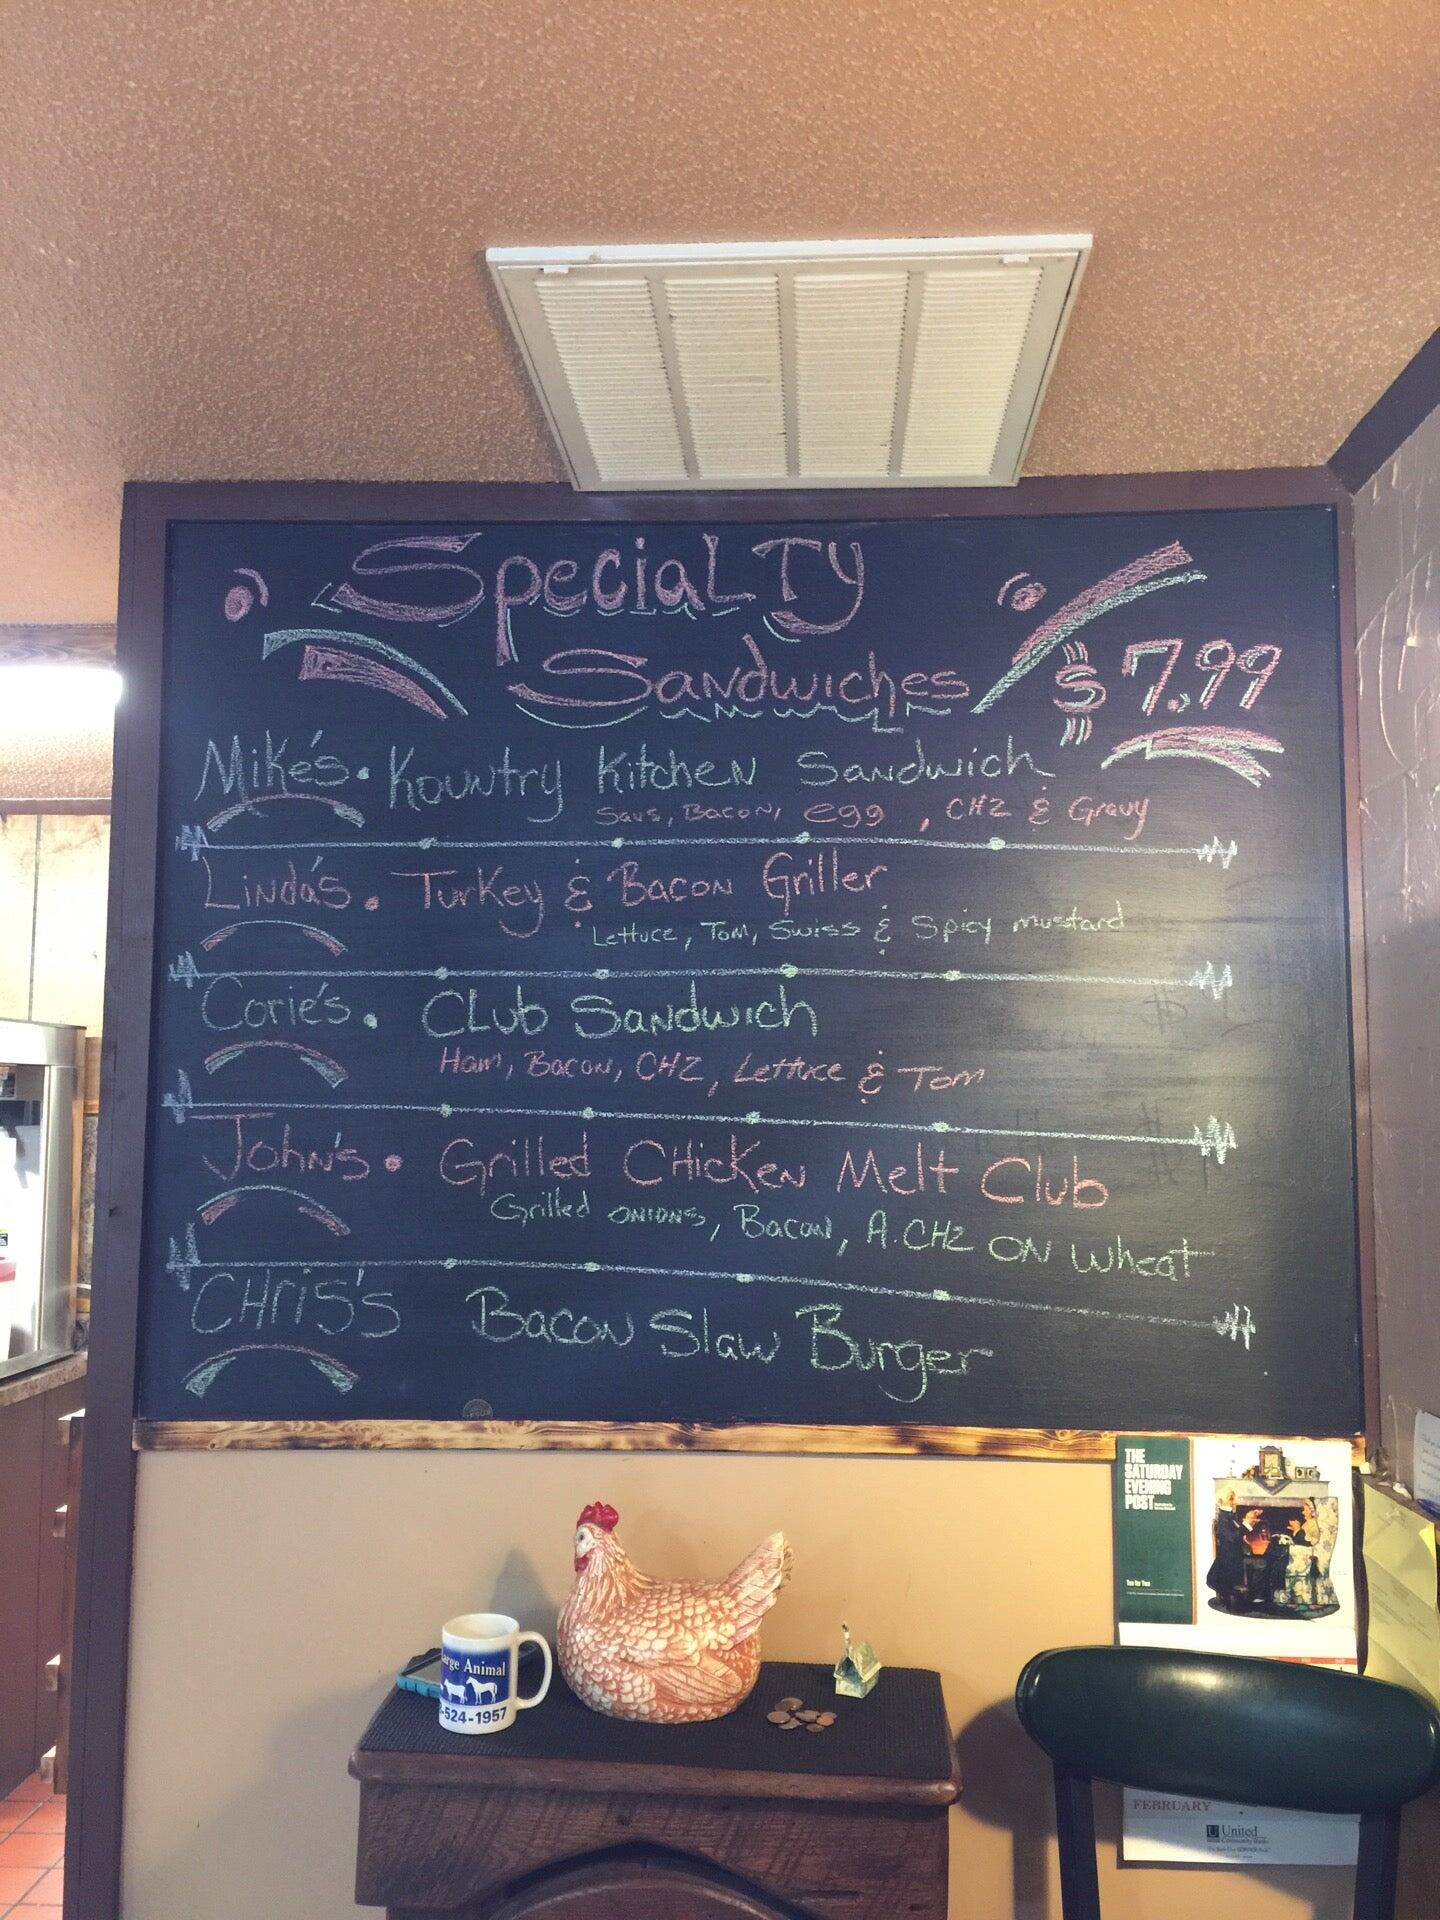 Specialty
Sandwiches $7.99
Mike's. Kountry Kitchen Sandwich
Saus, Bacon, egg, CHZ & Gravy
Linda's. Turkey & Bacon Griller
Lettuce, Tom, Swiss & Spicy mustard
Corie's. Club Sandwich
Ham, Bacon, CHZ, Lettuce & Tom
John's. Grilled Chicken Melt Club
Grilled onions, Bacon, A.CHZ on wheat
Chris's Bacon Slaw Burger
THE
SATURDAY
EVENING
POST
Tea for Two
arge Animal
-524-1957
FEBRUARY
United
Community Bank